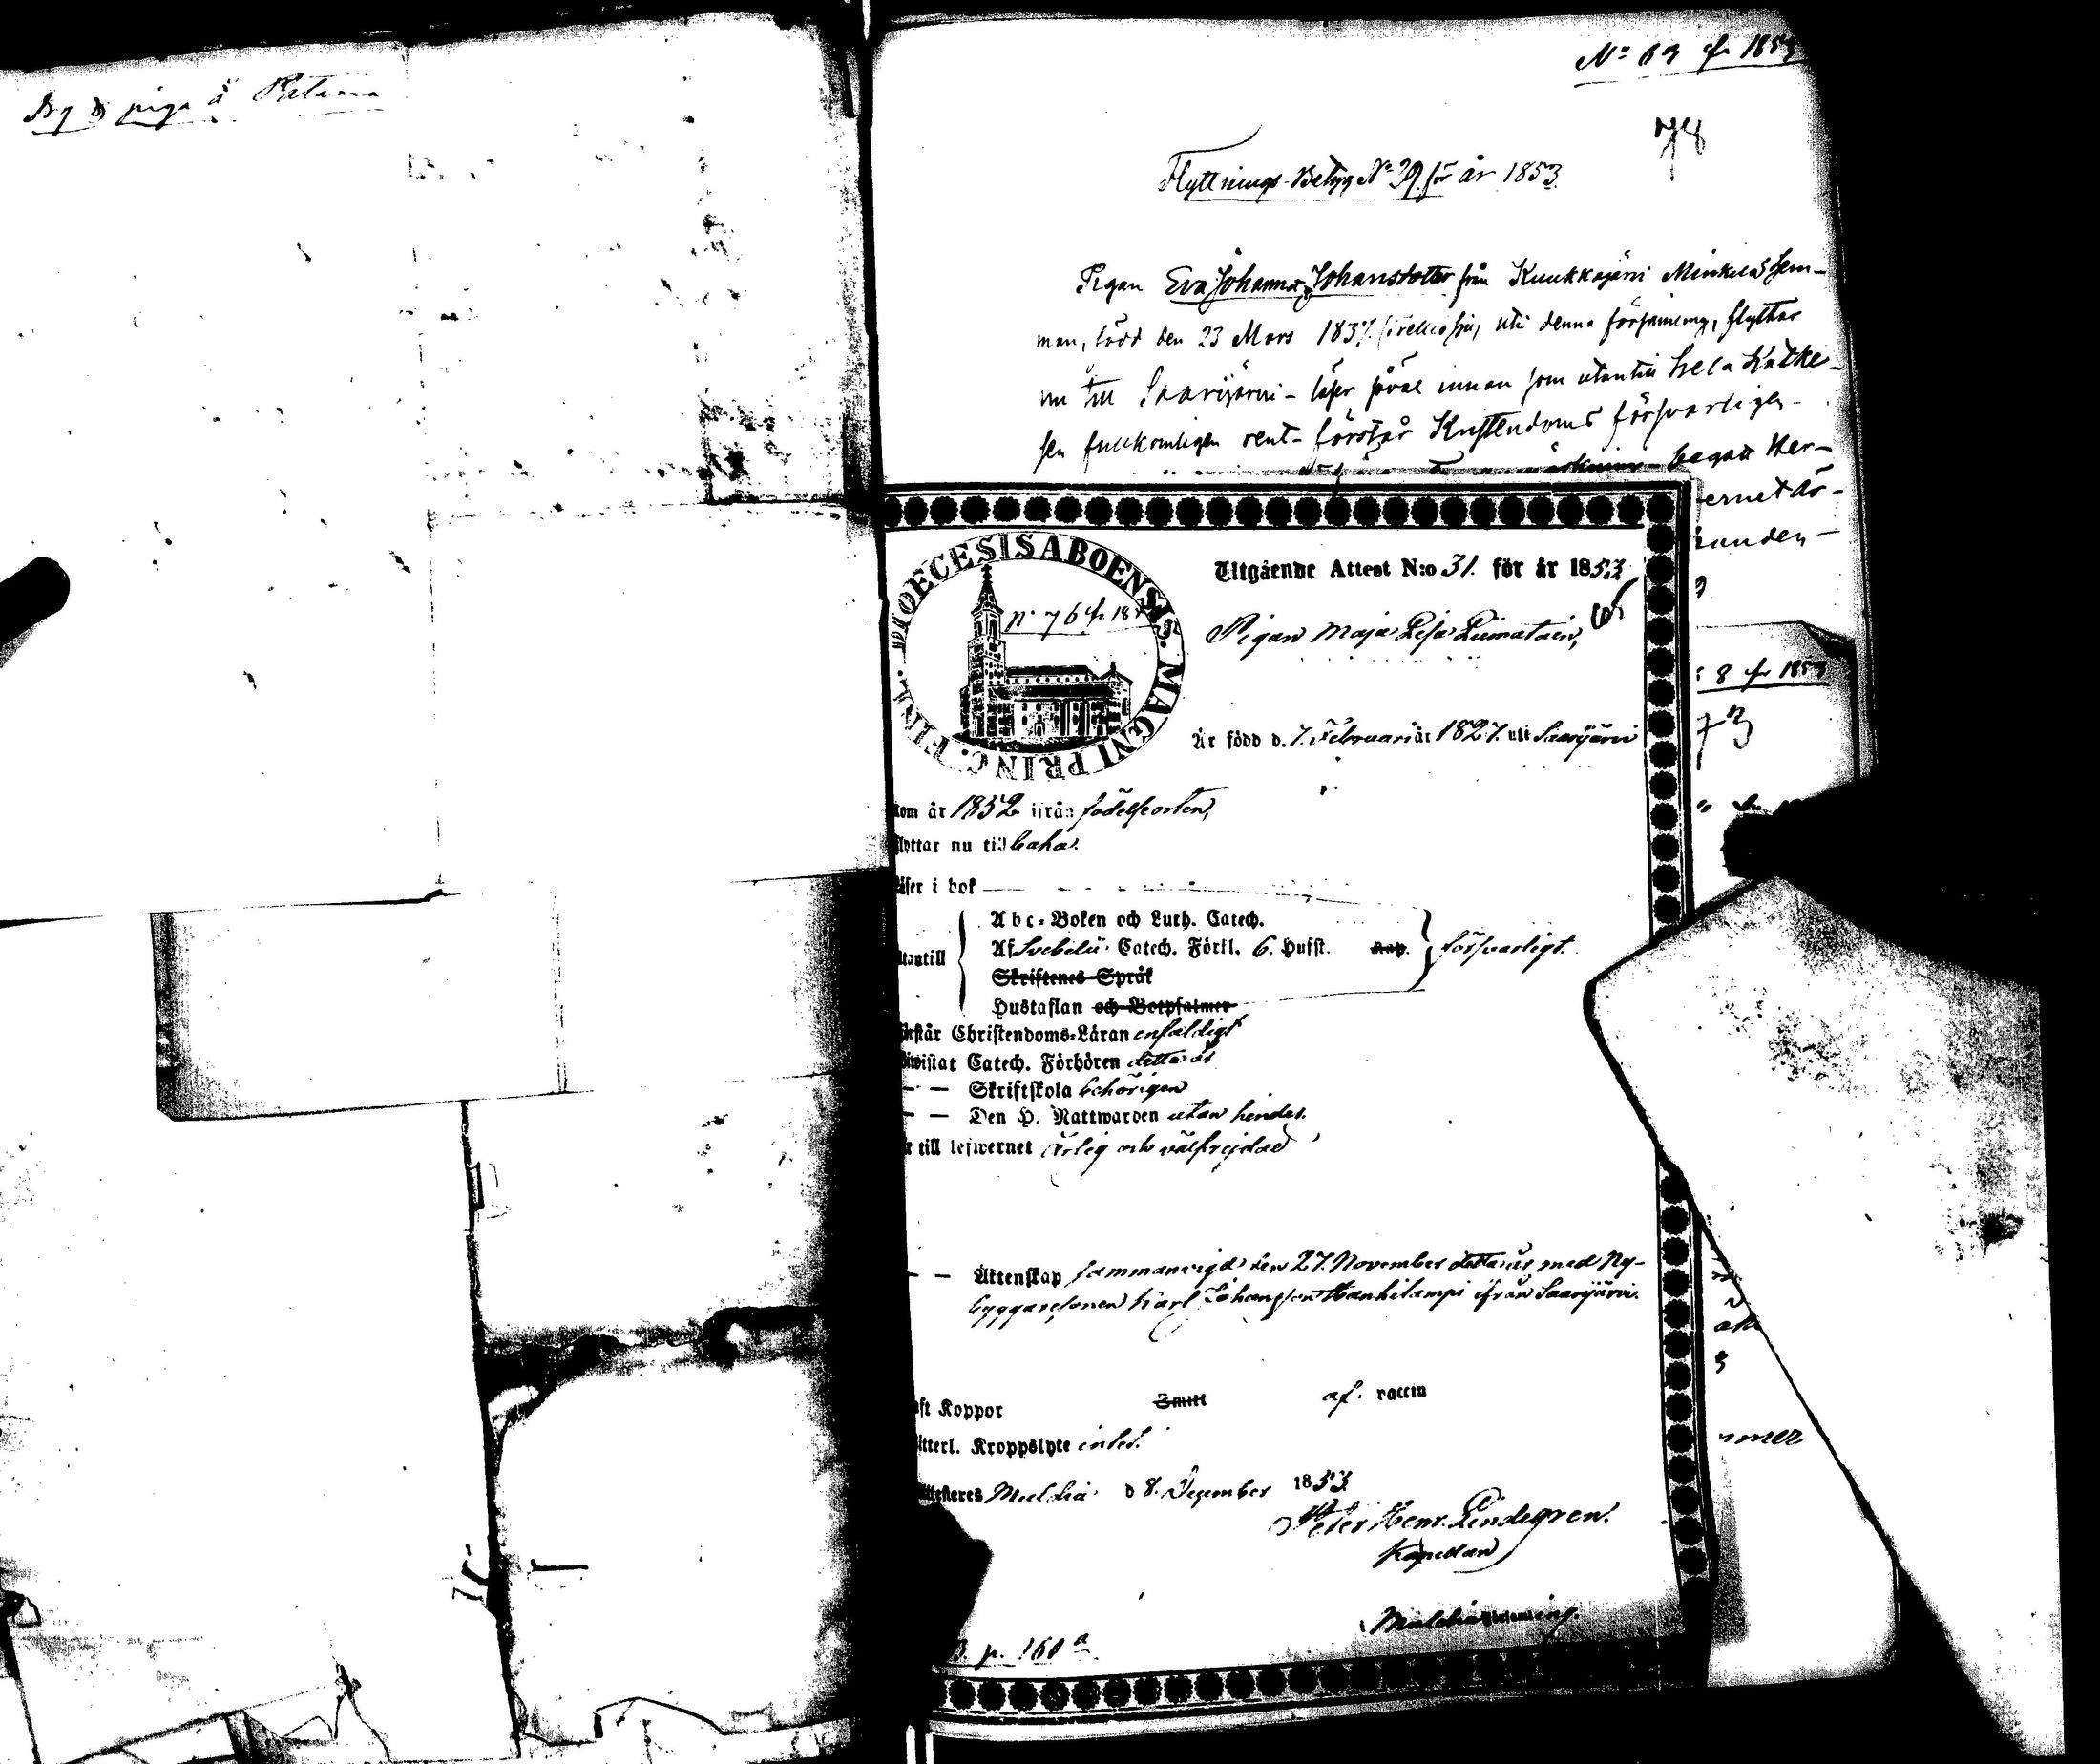 piga å Patana
No 63 fr 1853
78
Flyttnings-Betyg No 39 för år 1853.
Pigan Eva Johanna Johansdotter från Kuukkajärvi Minkilä hem-
man, född den 23 Mars 183 uti denna församling, flyttar
nu till Saarijärvi - läser såväl innan som utantill hela Katke-
sen fullkomligen rent - förstår Kristendoms försvarligen -
begått Her-
ernet är-
unden -
DIOECESIS ABOENSIS. MAGNI PRINC. FINL.
No 76 fr 18
Utgående Attest N:o 31. för år 1853
65
Pigan Maja Lisa Liimatain,
Är född d. 7. Februari år 1827. uti Saarijärvi
8 fr 1853
73
kom år 1852 ifrån födelseorten,
flyttar nu tillbaka.
Läser i bok
Utantill
Abc-Boken och Luth. Catech.
Af Svebelii Catech. Förkl. 6. Hufst. Kap. försvarligt.
Skriftenes Språk
Hustaflan och Botpsalmer
Förstår Christendoms-Läran enfaldigt
Bivistat Catech. Förhören detta år
— — Skriftskola behörigen
— — Den H. Nattwarden utan hinder.
Är till lefwernet ärlig och välfrejdad
— — Äktenskap sammanvigd den 27. November detta år med Ny-
byggaresonen Karl Johansson Hankilampi ifrån Saarijärvi.
Haft Koppor Smitt af. vaccin
Witterl. Kroppslyte intet.
Attesteres Muldia d 8. December 1853.
Peter Henr. Lindegren.
Kapellan
Muldia
p. 160 a